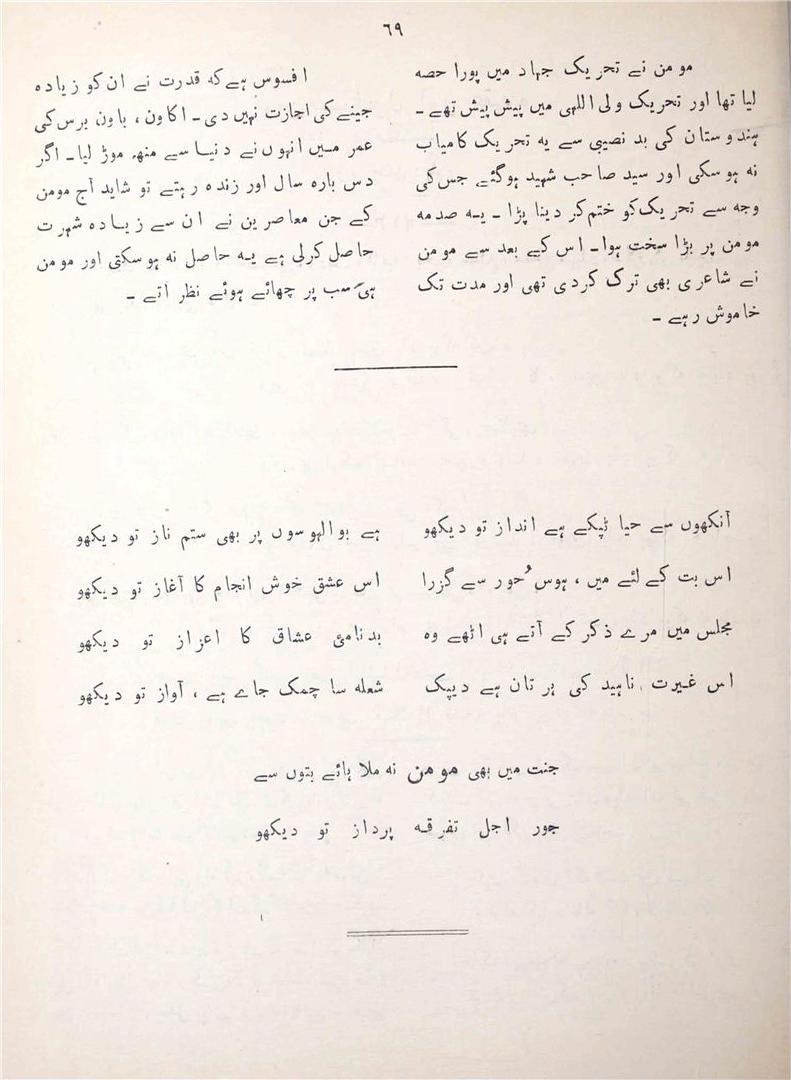 ٦٩
مومن نے تحریک جہاد میں پورا حصہ
لیا تھا اور تحریک ولی اللہی میں پیش پیش تھے ۔
ہندوستان کی بد نصیبی سے یہ تحریک کامیاب
نہ ہوسکی اور سید صاحب شہید ہوگئے جس کی
وجہ سے تحریک کو ختم کر دینا پڑا ۔ یہ صدمہ
مومن پر بڑا سخت ہوا۔ اس کے بعد سے مومن
نے شاعری بھی ترک کردی تھی اور مدت تک
خاموش رہے ۔
افسوس ہے کہ قدرت نے ان کو زیادہ
جینے کی اجازت نہیں دی ۔ اکاون ، باون برس کی
عمر میں انہوں نے دنیا سے منہ موڑ لیا۔ اگر
دس بارہ سال اور زندہ رہتے تو شاید آج مومن
کے جن معاصرین نے ان سے زیادہ شہرت
حاصل کرلی ہے یہ حاصل نہ ہوسکتی اور مومن
ہی سب پر چھائے ہوئے نظر اتے ۔
آنکھوں سے حیا ٹپکے ہے انداز تو دیکھو ہے بوالہوسوں پر بھی ستم ناز تو دیکھو
اس بت کے لئے میں ، ہوس حور سے گزرا اس عشق خوش انجام کا آغاز تو دیکھو
مجلس میں مرے ذکر کے آتے ہی اٹھے وہ بدنامئ عشاق کا اعزاز تو دیکھو
اس غیرت ناہید کی ہر تان ہے دیپک شعلہ سا چمک جاے ہے ، آواز تو دیکھو
جنت میں بھی مومن نہ ملا ہائے بتوں سے
جور اجل تفرقہ پرداز تو دیکھو